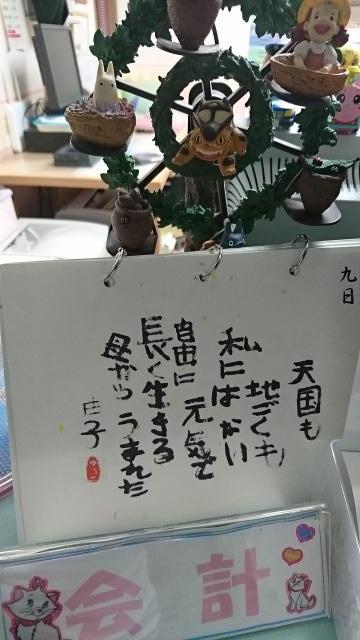 九日
天国も
地ごくも
私にはない
自由に元気で
長く生きる
母からうまれた
庄子
会計